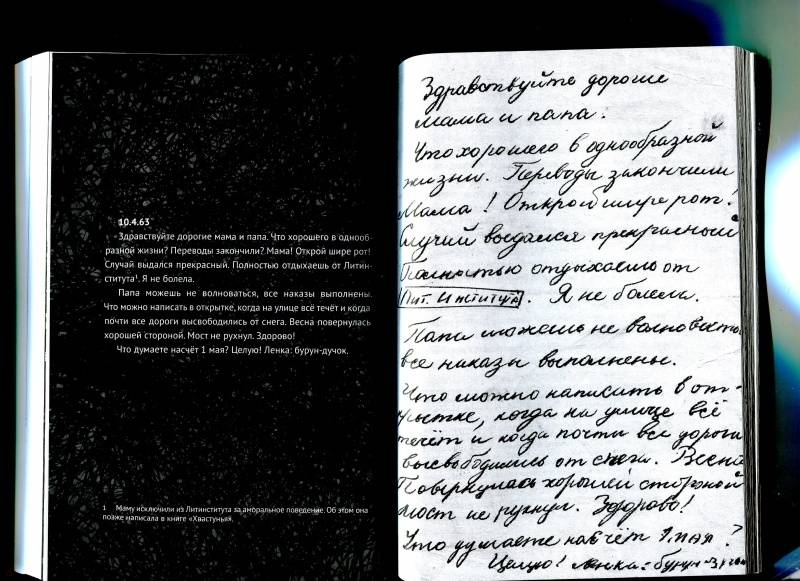 10.4.63
Здравствуйте дорогие мама и папа. Что хорошего в однооб-
разной жизни? Переводы закончили? Мама! Открой шире рот!
Случай выдался прекрасный. Полностью отдыхаешь от Литин-
ститута¹. Я не болела.
Папа можешь не волноваться, все наказы выполнены.
Что можно написать в открытке, когда на улице всё течёт и когда
почти все дороги высвободились от снега. Весна повернулась
хорошей стороной. Мост не рухнул. Здорово!
Что думаете насчёт 1 мая? Целую! Ленка: бурун-дучок.
1 Маму исключили из Литинститута за аморальное поведение. Об этом она
позже написала в книге «Хвастунья».
Здравствуйте дорогие
мама и папа.
Что хорошего в однообразной
жизни. Переводы закончили
Мама! Открой шире рот!
Случай выдался прекрасный
Полностью отдыхаешь от
Лит. Института. Я не болела.
Папа можешь не волноваться
все наказы выполнены.
Что можно написать в от-
крытке, когда на улице всё
течёт и когда почти все дороги
высвободились от снега. Весна
Повернулась хорошей стороной
Мост не рухнул. Здорово!
Что думаете насчёт 1 мая?
Целую! Ленка: бурун-